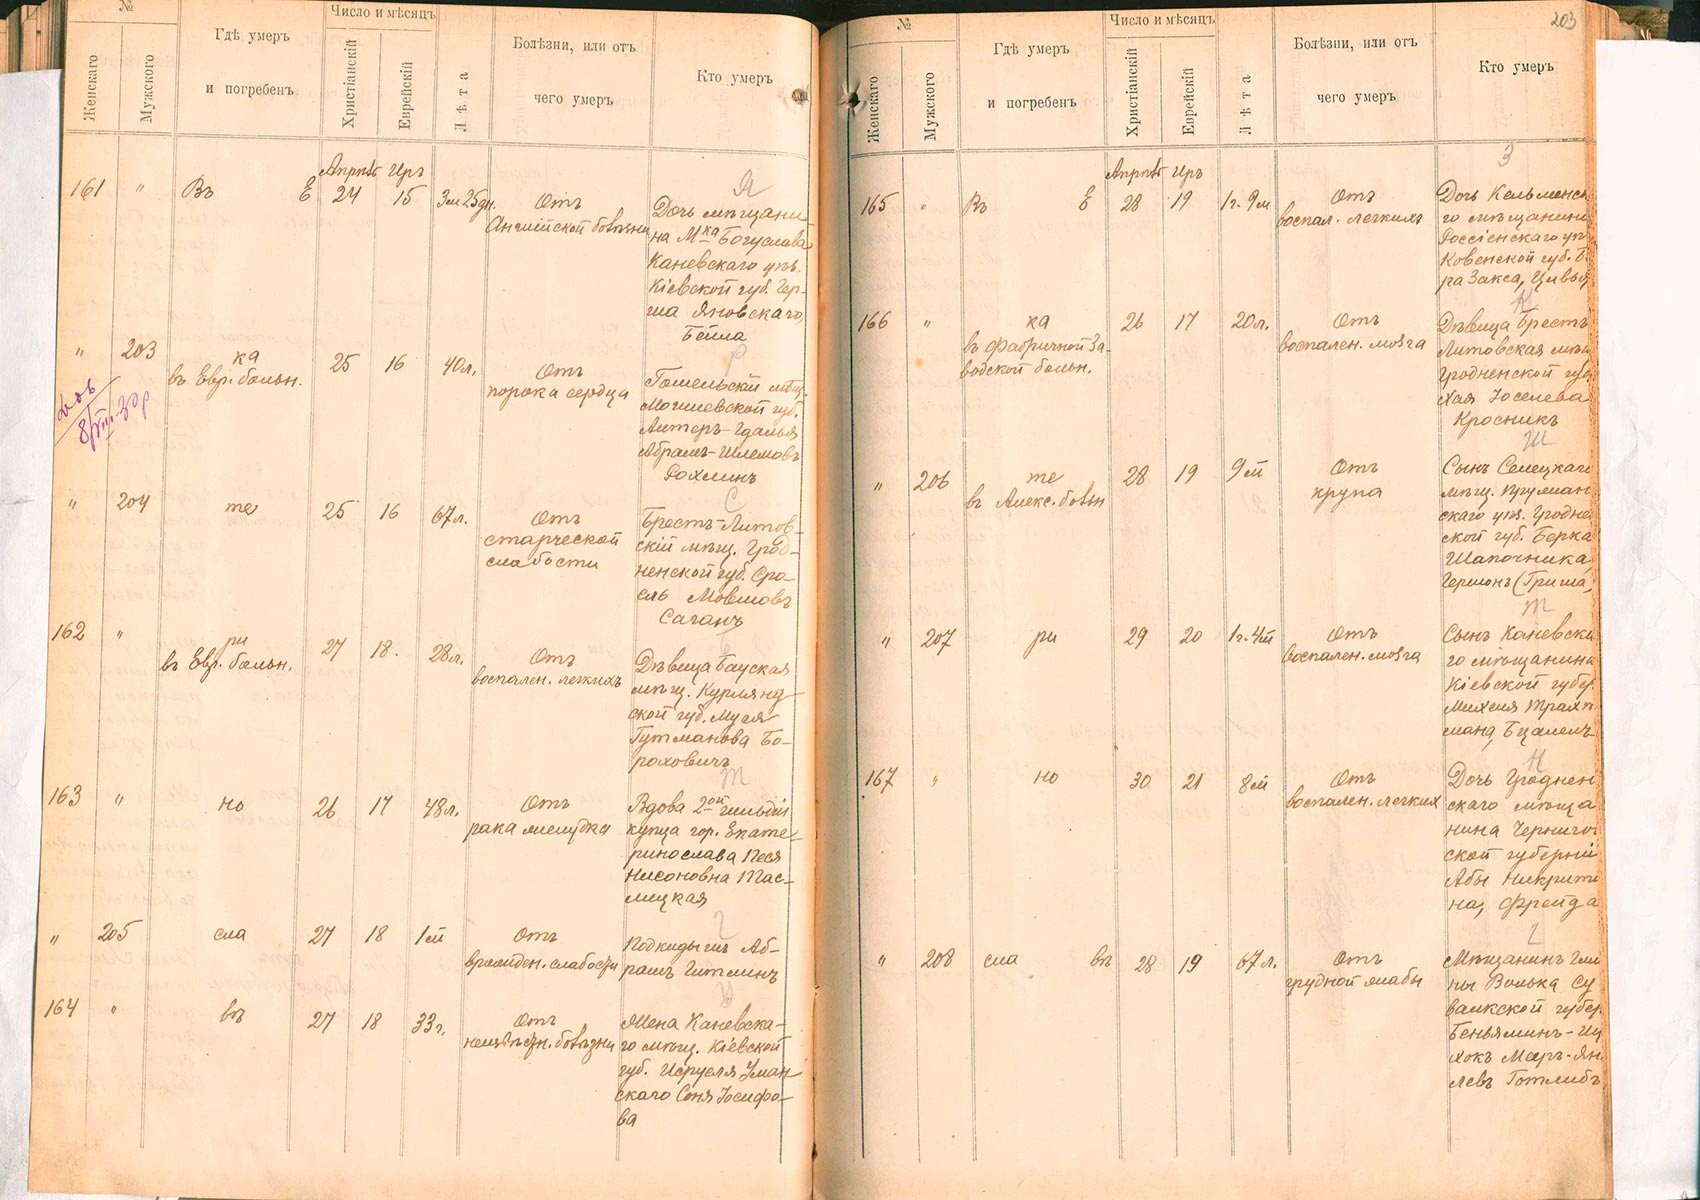 №
Женскаго
Мужского
Гдѣ умеръ
и погребенъ
Число и мѣсяцъ
Христіанскій
Еврейскій
Лѣта
Болѣзни, или отъ
чего умеръ
Кто умеръ
Апрѣль Иръ
161 " Въ Е 24 15 3м 25дн.
Отъ
Английской болѣзни
Я
Дочь мѣщани-
на М-ка Богуслава
Каневскаго уѣз.
Кіевской губ. Гер-
ша Яновскаго,
Бейла
" 203
ка
въ Евр. больн.
25 16 40л.
Отъ
порока сердца
Р
Гомельскій мѣщ.
Могилевской губ.
Алтеръ-Гдалья
Абрамъ-Шлемовъ
Рохлинъ
8/VIII-30г
" 204 те 25 16 67л.
Отъ
старческой
слабости
С
Брестъ-Литов-
скій мѣщ. Грод-
ненской губ. Сро-
ель Мовшовъ
Саганъ
162 "
ри
въ Евр. больн.
27 18. 28л.
Отъ
воспален. легкихъ
Б
Дѣвица Бауская
мѣщ. Курлянд-
ской губ. Муся
Гутманова Бо-
роховичъ
163 " но 26 17 48л.
Отъ
рака желудка
Т
Вдова 2ой гильдіи
купца гор. Екате-
ринослава Песя
Нисоновна Тас-
лицкая
" 205 сла 27 18 1м
Отъ
врожден. слабости
Г
Подкидышъ Аб-
рамъ Гитлинъ
164 " въ 27 18 33г.
Отъ
неизвѣстн. болѣзни
Жена Каневска-
го мѣщ. Кіевской
губ. Исруеля Уман-
скаго Соня Іосифо-
ва
203
№
Женскаго
Мужского
Гдѣ умеръ
и погребенъ
Число и мѣсяцъ
Христіанскій
Еврейскій
Лѣта
Болѣзни, или отъ
чего умеръ
Кто умеръ
Апрѣль Иръ
165 " Въ Е 28 19 1г. 9м
Отъ
воспал. легкихъ
З
Дочь Кельменска
го мѣщанина
Россіенскаго уѣ
Ковенской губ. Б
ра Закса, Цивья
166 "
ка
въ фабричной За-
водской больн.
26 17 20л.
Отъ
воспален. мозга
К
Дѣвица Брестъ
Литовская мѣщ
Гродненской губ
Хая Іоселева
Кросникъ
" 206
те
въ Алекс. больн
28 19 9м
Отъ
крупа
Ш
Сынъ Селецкаго
мѣщ. Пружан-
скаго уѣз. Гродне
ской губ. Берка
Шапочника,
Гершонъ (Гриша)
" 207 ри 29 20 1г. 4м
Отъ
воспален. мозга
Т
Сынъ Каневска
го мѣщанина
Кіевской губер.
Михеля Трахт
мана, Бцалель
167 " но 30 21 8м
Отъ
воспален. легких
Н
Дочь Гроднен
скаго мѣща
нина Чернигов
ской губерніи
Абы Никрити
на, Фрейда
" 208 сла въ 28 19 67л.
Отъ
грудной жабы
Г
Мѣщанинъ Гми
ны Волька Су
валкской губер
Беньяминъ-Иц
хокъ Меръ-Ян
левъ Готлибъ